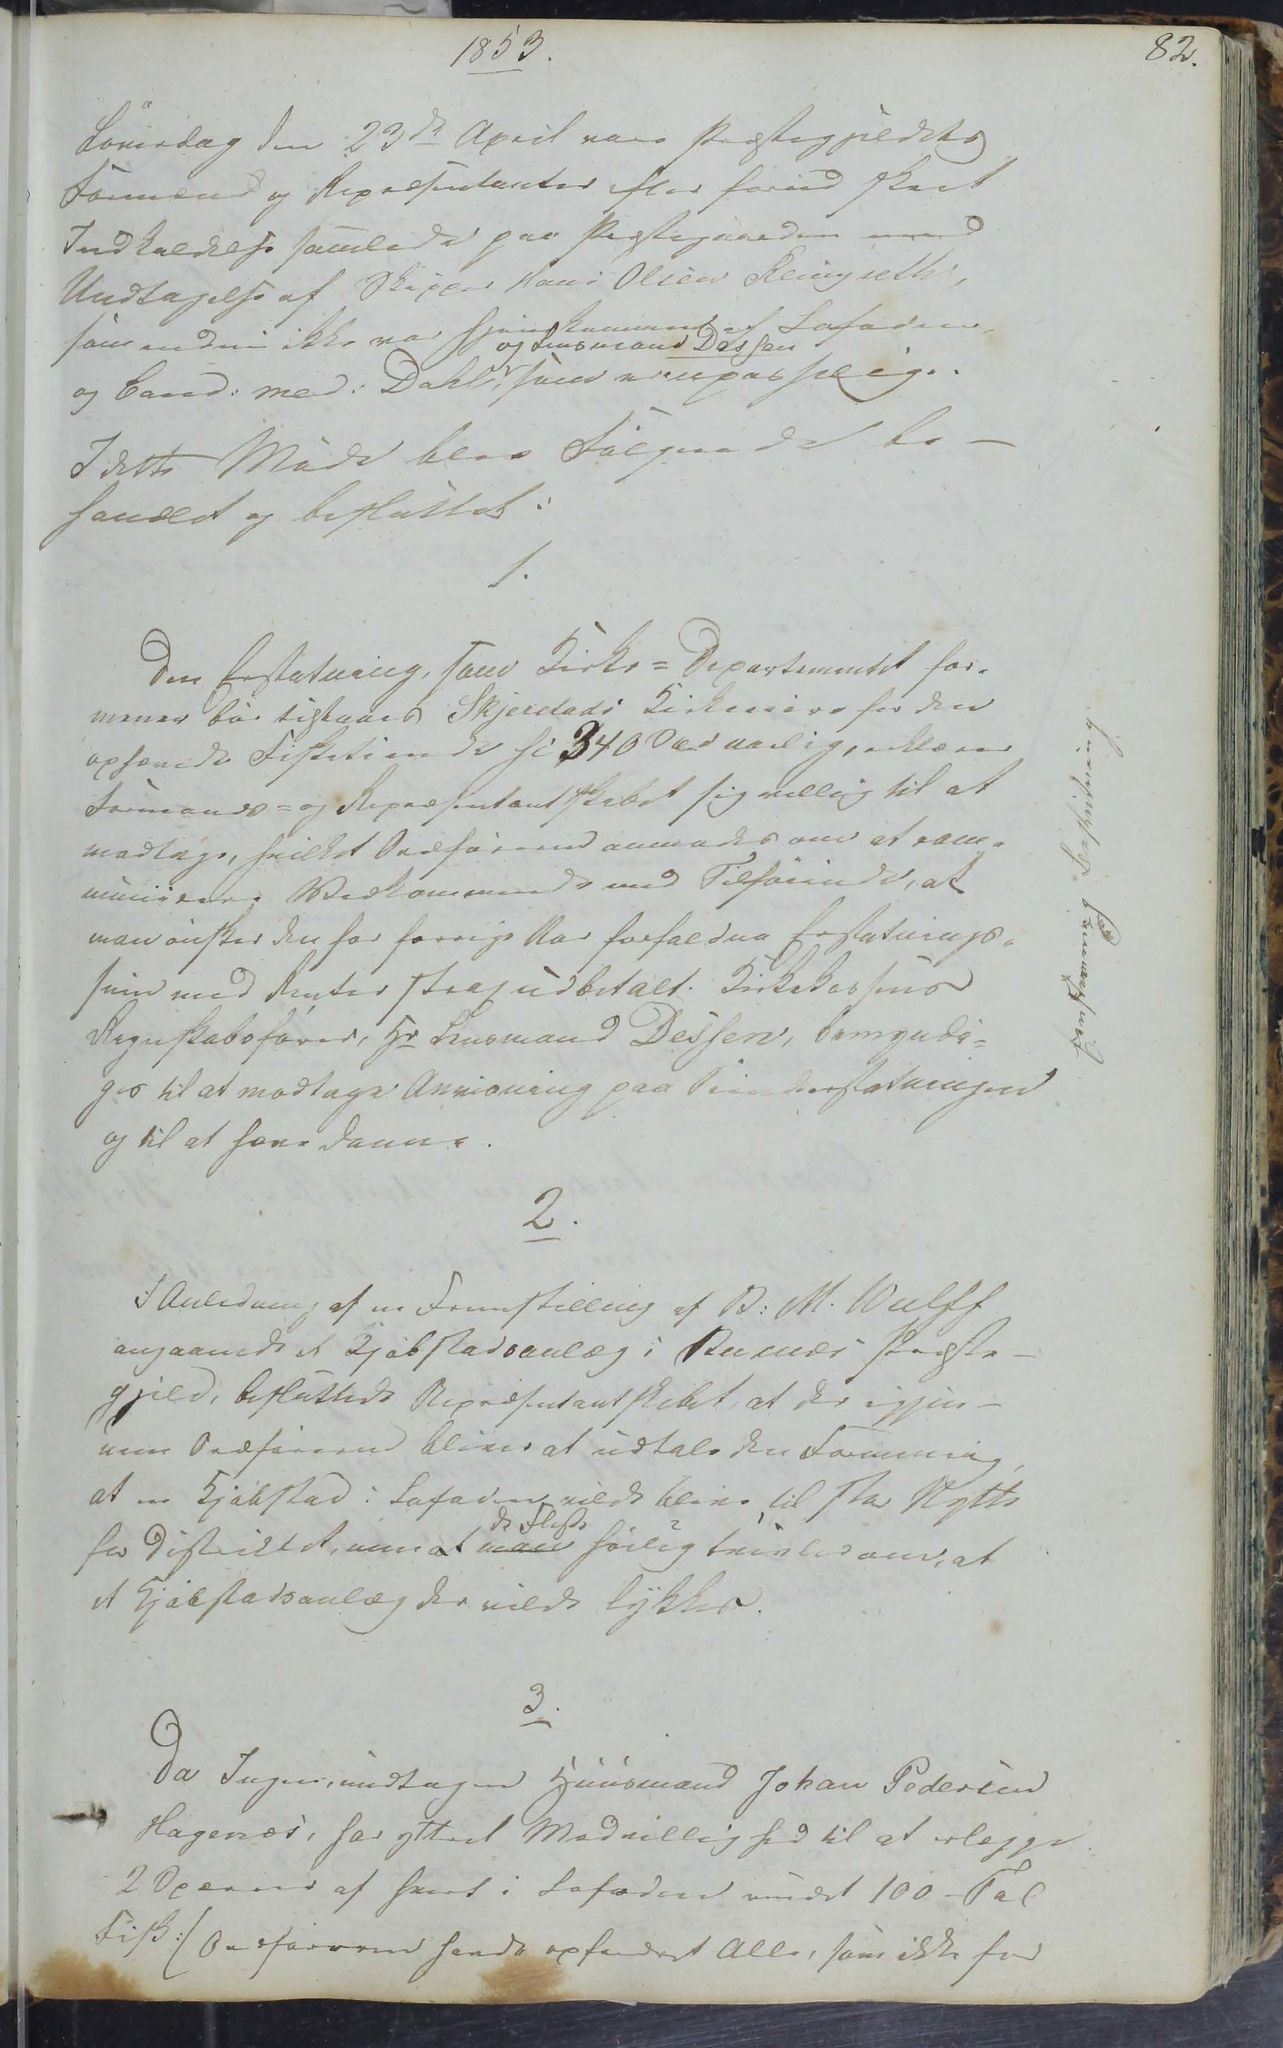 1853.
82.
Löverdag den 23de April vare Præstegjeldets
Formænd og Repræsentanter efter forud skeet
Indkaldelse samlede paa Præstegaarden med
Undtagelse af Skipper Hans Olsen Klengseth,
som endnu ikke var hjemkommen af Lofoden,
og Lensmand Dessen
og Cand: med: Dahl, som var upasselig.
I dette Möde blev Fölgende be-
handlet og besluttet:
1.
Den Erstatning, som Kirke=Departementet for-
mener bör tilstaaes Skjerstads Kirkeeiere for den
ophævede Fisketiende hi 340 Vaar aarlig, erklærer
Formands= og Repræsentantskabet sig villig til at
modtage, hvilket Ordföreren anmodes om at com-
municere Vedkommende med Tilföiende, at
man önsker den for forrige Aar forfaldne Erstatnings-
sum med Renter strax udbetalt. Kirkekassens
Regnskabsförer, Hr Lensmand Dessen, bemyndi-
ges til at modtage Anvisning paa Tiendeerstatningen
og til at hæve denne.
2.
I Anledning af en Fremstilling af B: M. Wulff
angaaende et Kjöbstadsanlæg i Buxnæs Præste-
gjeld, besluttede Repræsentantskabet, at der igjen-
nem Ordföreren bliver at udtale den Formening,
at en Kjöbstad i Lofoden vilde blive til stor Nytte
de Fleste
for Distriktet, men at man höilig tvivler om, at
et Kjöbstadsanlæg der vilde lykkes.
3.
Da Ingen, undtagen Huusmand Johan Pedersen
Hagenæs, har yttret Modvillighed til at erlægge
2 Ort af hvert i Lofoden vundet 100-Tal
Fisk: /: Ordföreren havde opfordret Alle, som ikke for